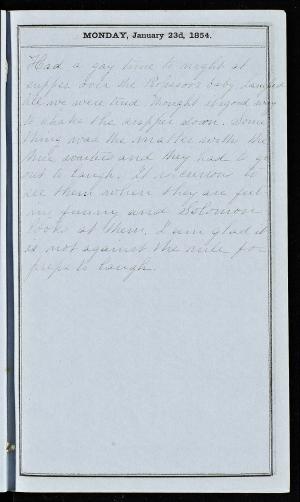 MONDAY, January 23d, 1854.
Had a gay time to night at
supper over the Professors baby laughed
till we were tired thought it good way
to shake the supper down. Some
thing was the matter with the
three waiters and they had to go
out to laugh. It is curious to
see them when they are feel
ing funny and Solomon
looks at them. I am glad it
is not against the rule for
preps to laugh.